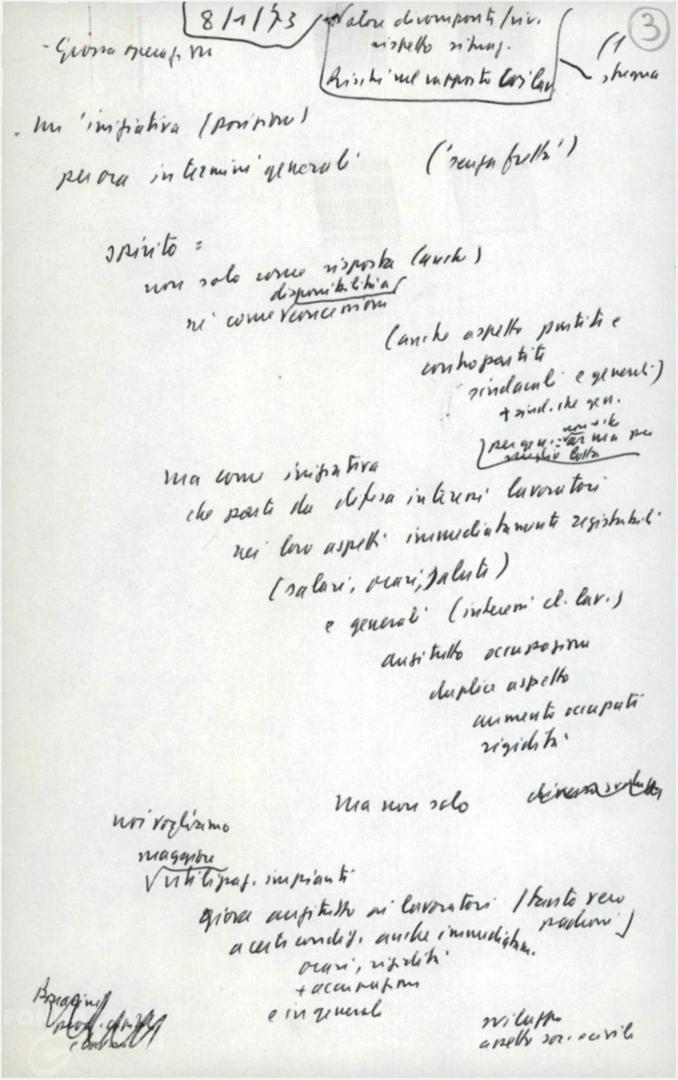 8/1/73
Valore divomponti/riv.
rispetto situaz.
Rischi nel rapporto
(1
stregua
3
- Grossa operazione
. un'iniziativa (posizione)
per ora in termini generali ('senza fretta')
spirito =
non solo come risposta (anche)
disponibilità
né come concessioni
(anche aspetto partiti e
controparti
sindacali e generali)
+ sind. che gen.
per gen. ma per
ma come iniziativa
che parte da difesa interessi lavoratori
nei loro aspetti immediatamente registrabili
(salari, orari, salute)
e generali (interessi cl. lav.)
anzitutto occupazione
duplice aspetto
aumento occupati
rigidità
ma non solo
noi vogliamo
maggiore
utilizzaz. impianti
giova anzitutto ai lavoratori (tanto vero
padroni)
a certe condiz. anche immediatam.
orari, rigidità
+ occupazione
e in generale
sviluppo
assetto soc. e civile